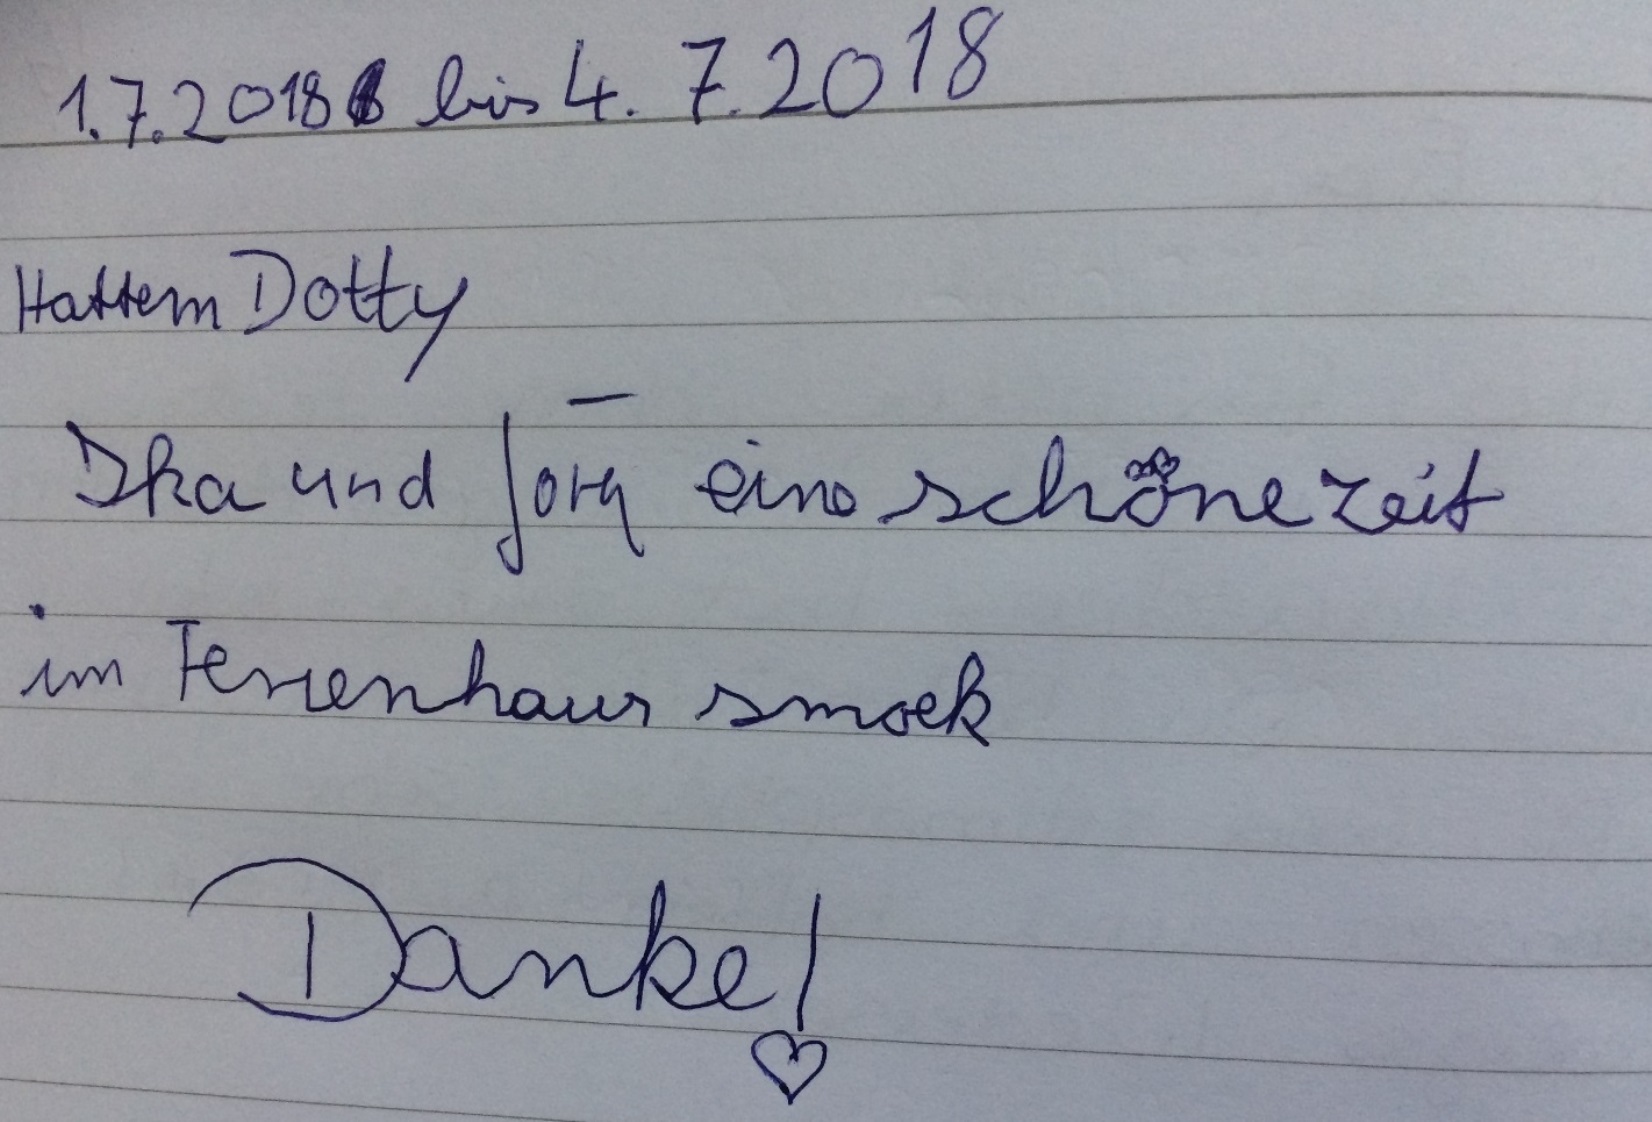 1.7.2018 bis 4.7.2018
Hattem Dotty
Ika und Jorg eine schöne zeit
im Ferienhaus smoek
Danke!